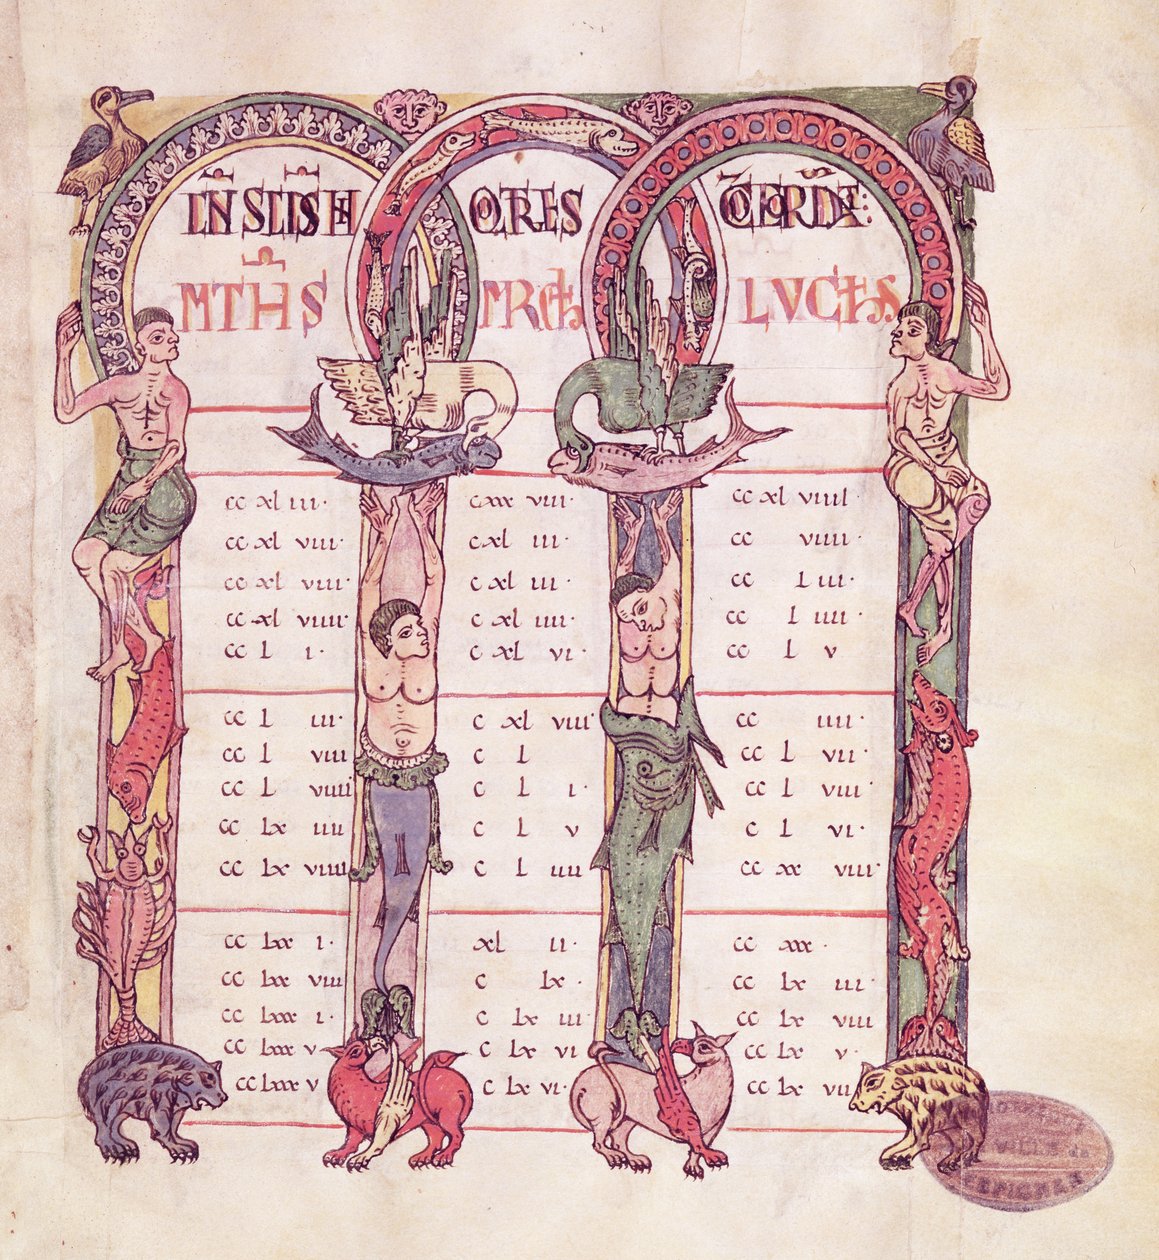 IN
MTHS LVCAS
cc xl iii· cxxx viii· cc xl viiii·
cc xl viii· cxl iii· cc viiii·
cc xl viii· c xl iii· cc l iii·
cc xl viiii· c xl iiii· cc l iiii·
cc l i· c xl vi· cc l v
cc l iii· c xl viii· cc iiii·
cc l viii· c l cc l vii·
cc l viiii c l i· cc l viii·
cc lx iiii· c l v cc l vi·
cc lx viiii c l iiii cc xx viii·
cc lxx i· xl ii· cc xxx·
cc lxx viii c lx· cc lx iii·
cc lxxx i· c lx iii cc lx viii
cc lxxx v c lx vi cc lx v·
cc lxxx v c lx vi· cc lx vii
VILLE DE